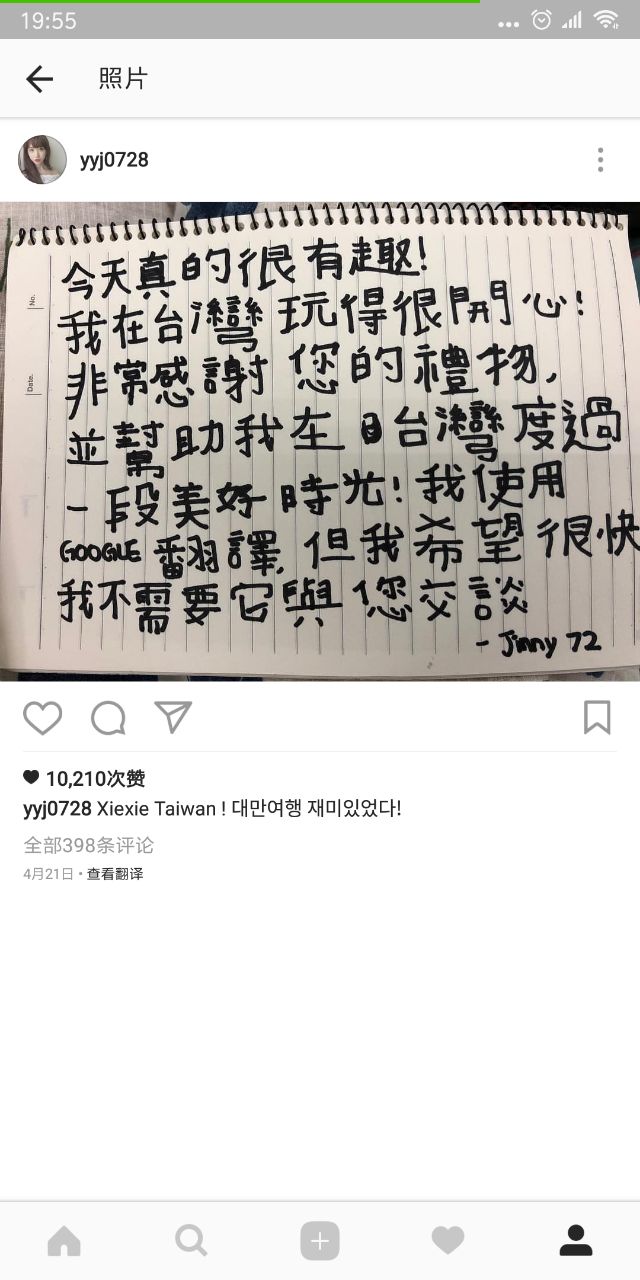 19:55
照片
yyj0728
No.
Date.
今天真的很有趣!
我在台灣玩得很開心!
非常感謝您的禮物,
並幫助我在台灣度過
一段美好時光!我使用
GOOGLE翻譯,但我希望很快
我不需要它與您交談
- Jinny 72
10,210次赞
yyj0728 Xiexie Taiwan ! 대만여행 재미있었다!
全部398条评论
4月21日 • 查看翻译